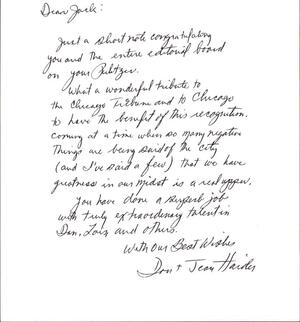 Dear Jack:
Just a short note congratulating
you and the entire editorial board
on your Pulitzer.
What a wonderful tribute to
the Chicago Tribune and to Chicago
to have the benefit of this recognition.
Coming at a time when so many negative
things are being said of the city
(and I've said a few) that we have
greatness in our midst is a real upper.
You have done a superb job
with truly extraordinary talent in
Dan, Lois and others.
With Our Best Wishes
Don + Jean Haider